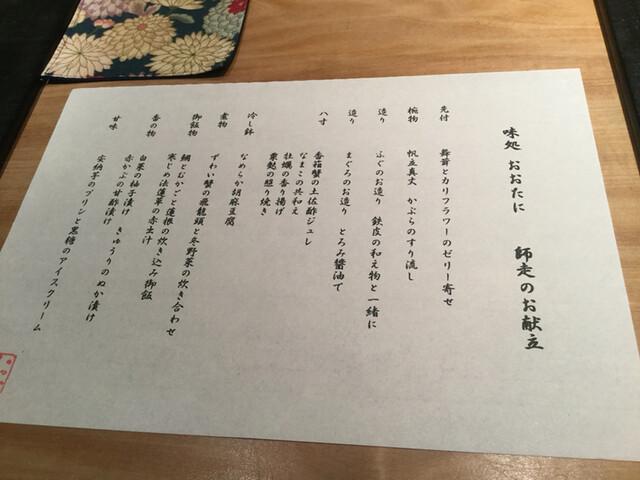 味処 おおたに 師走のお献立
先付 舞茸とカリフラワーのゼリー寄せ
椀物 帆立真丈 かぶらのすり流し
造り ふぐのお造り 鉄皮の和え物と一緒に
造り まぐろのお造り とろみ醤油で
八寸 香箱蟹の土佐酢ジュレ
なまこの共和え
牡蠣の香り揚げ
粟麩の照り焼き
冷し鉢 なめらか胡麻豆腐
煮物 ずわい蟹の飛龍頭と冬野菜の炊き合わせ
御飯物 鯛とむかごと蓮根の炊き込み御飯
寒じめ法蓮草の赤出汁
香の物 白菜の柚子漬け きゅうりのぬか漬け
赤かぶの甘酢漬け
甘味 安納芋のプリンと黒糖のアイスクリーム